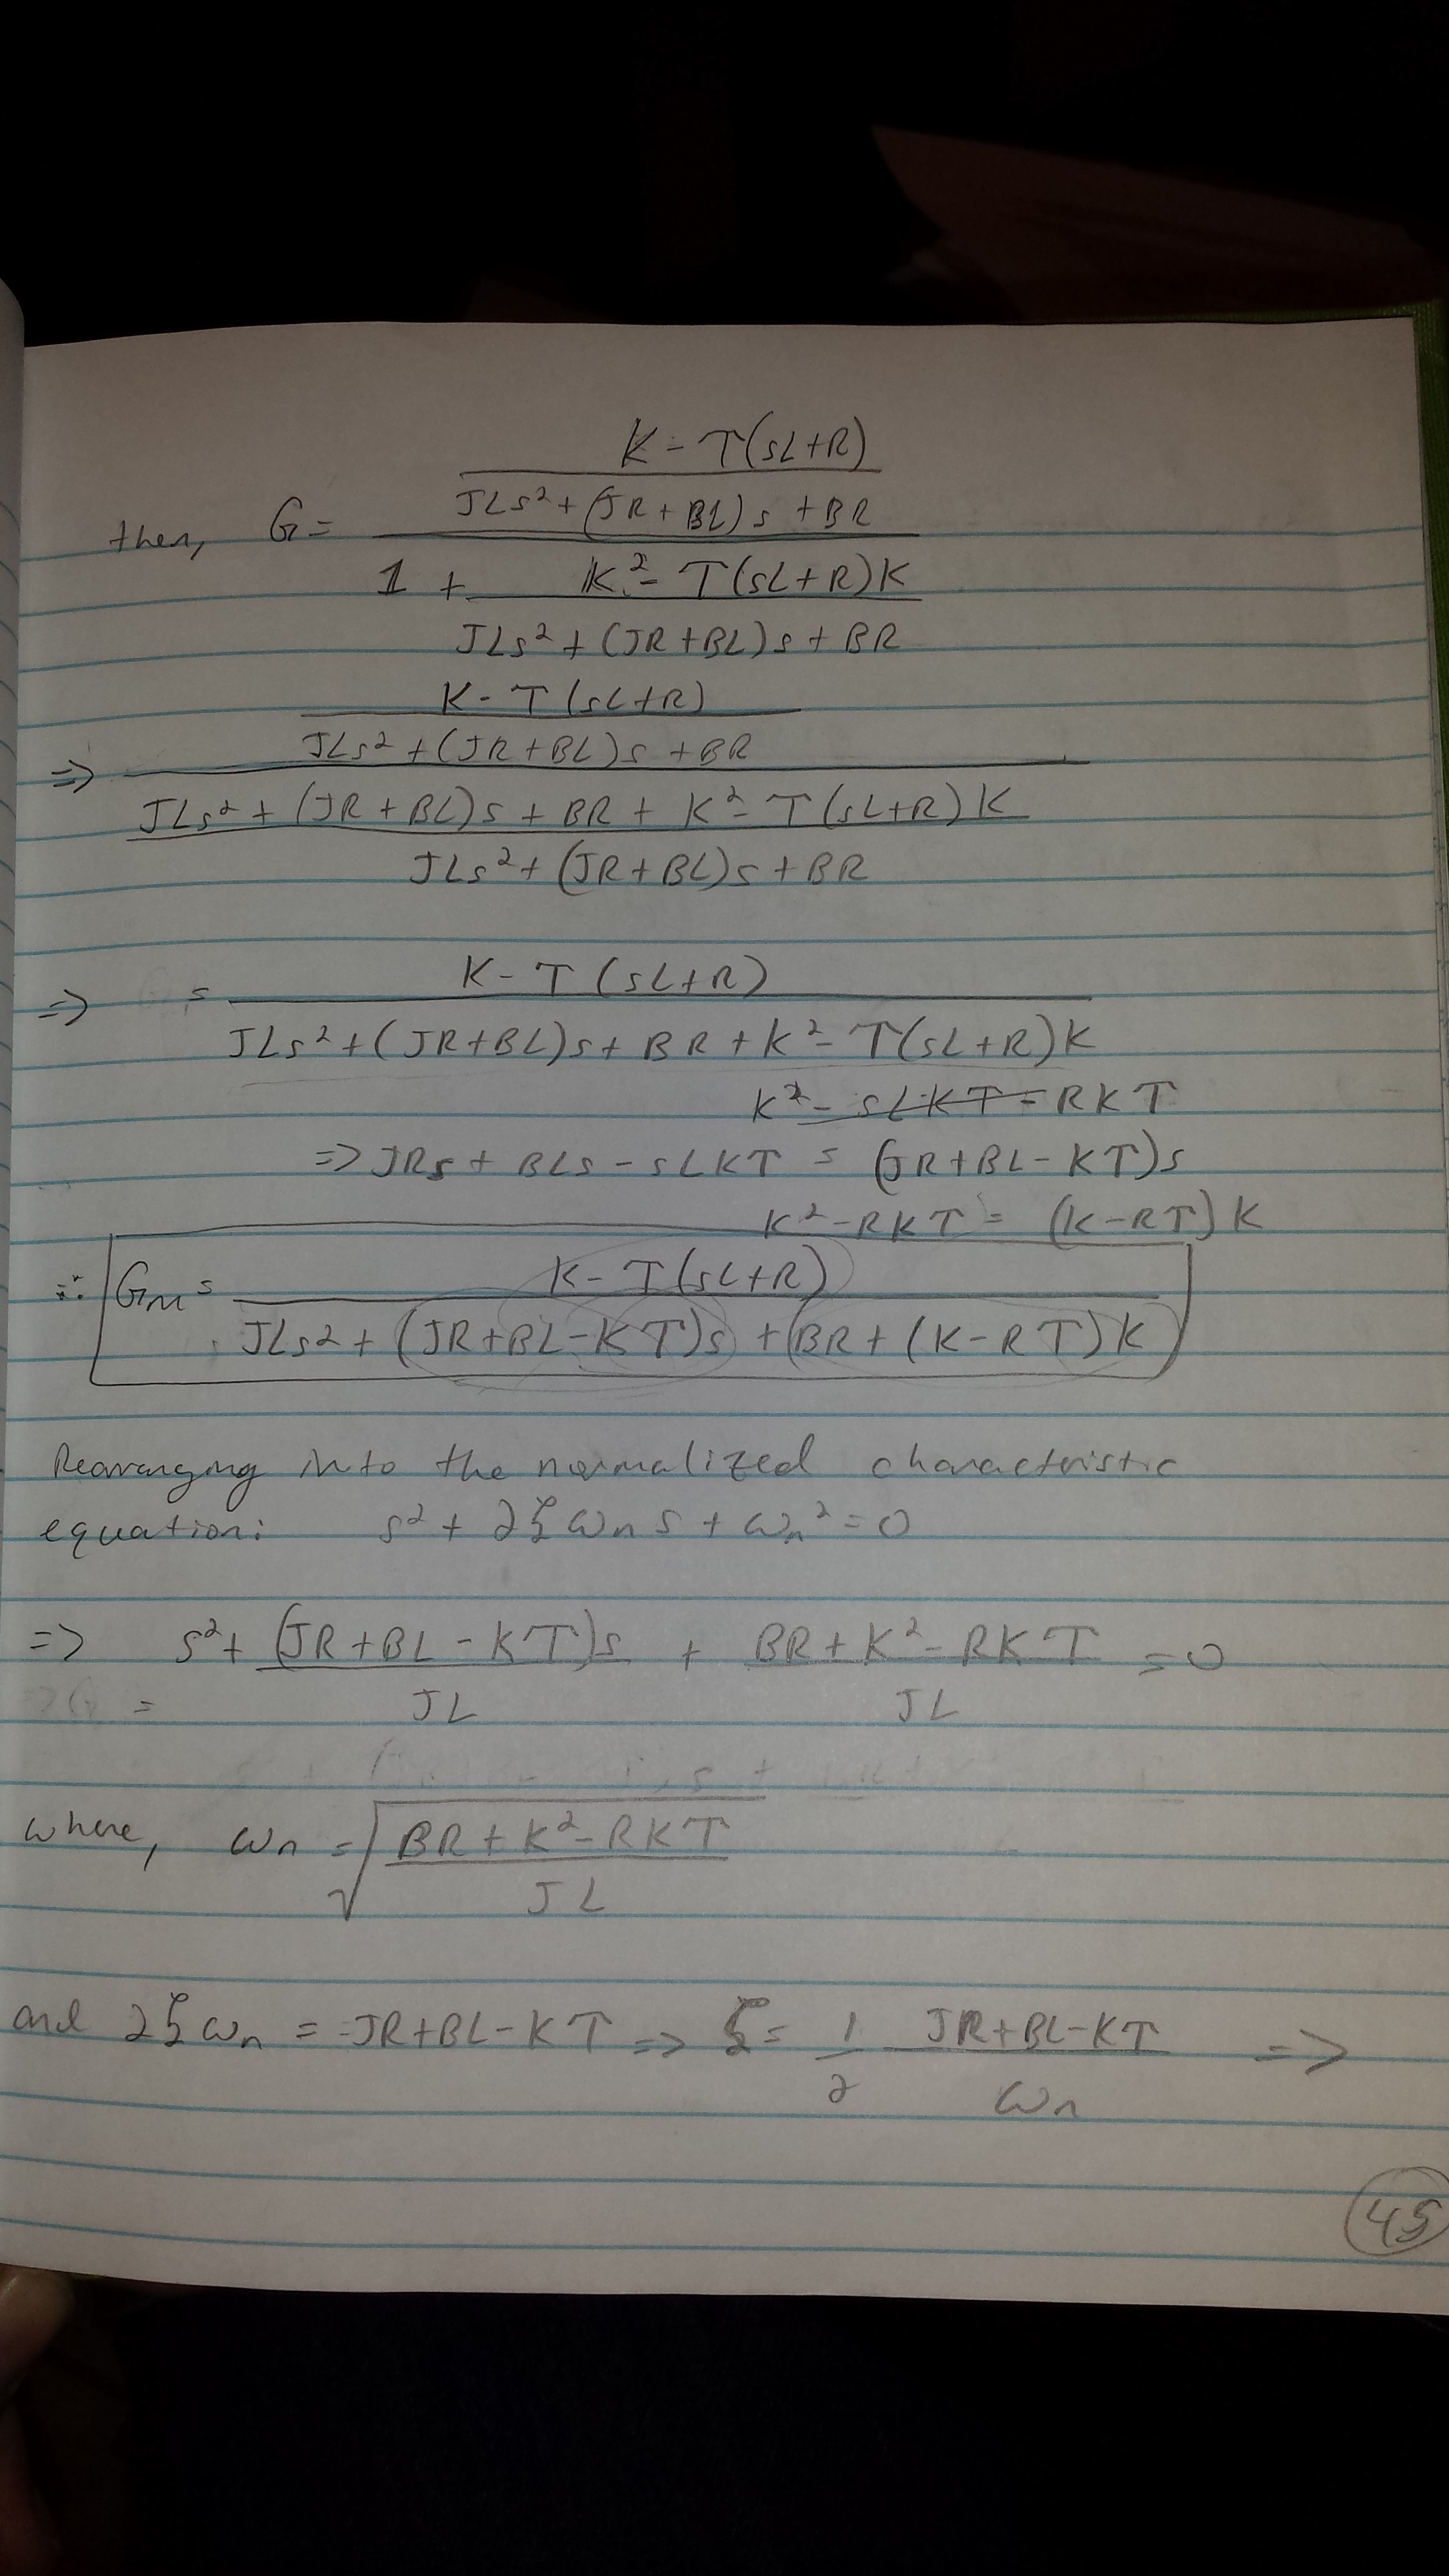 K - T(sL+R)
JLs² + (JR + BL)s + BR
then, G =
1 + K² - T(sL+R)K
JLs² + (JR+BL)s + BR
K - T(sL+R)
JLs² + (JR+BL)s + BR
=>
JLs² + (JR + BL)s + BR + K² - T(sL+R)K
JLs² + (JR+BL)s + BR
K - T(sL+R)
=> =
JLs² + (JR+BL)s + BR + K² - T(sL+R)K
K² - sLKT - RKT
=> JRs + BLs - sLKT = (JR+BL-KT)s
K² - RKT = (K-RT)K
∴ Gm = K - T(sL+R)
JLs² + (JR+BL-KT)s + (BR + (K-RT)K
Rearranging into the normalized characteristic
equation: s² + 2ζωn s + ωn² = 0
=> s² + (JR+BL-KT)s + BR + K² - RKT = 0
JL JL
where, ωn = √ BR + K² - RKT
JL
and 2ζωn = JR+BL-KT => ζ = 1 JR+BL-KT =>
2 ωn
45